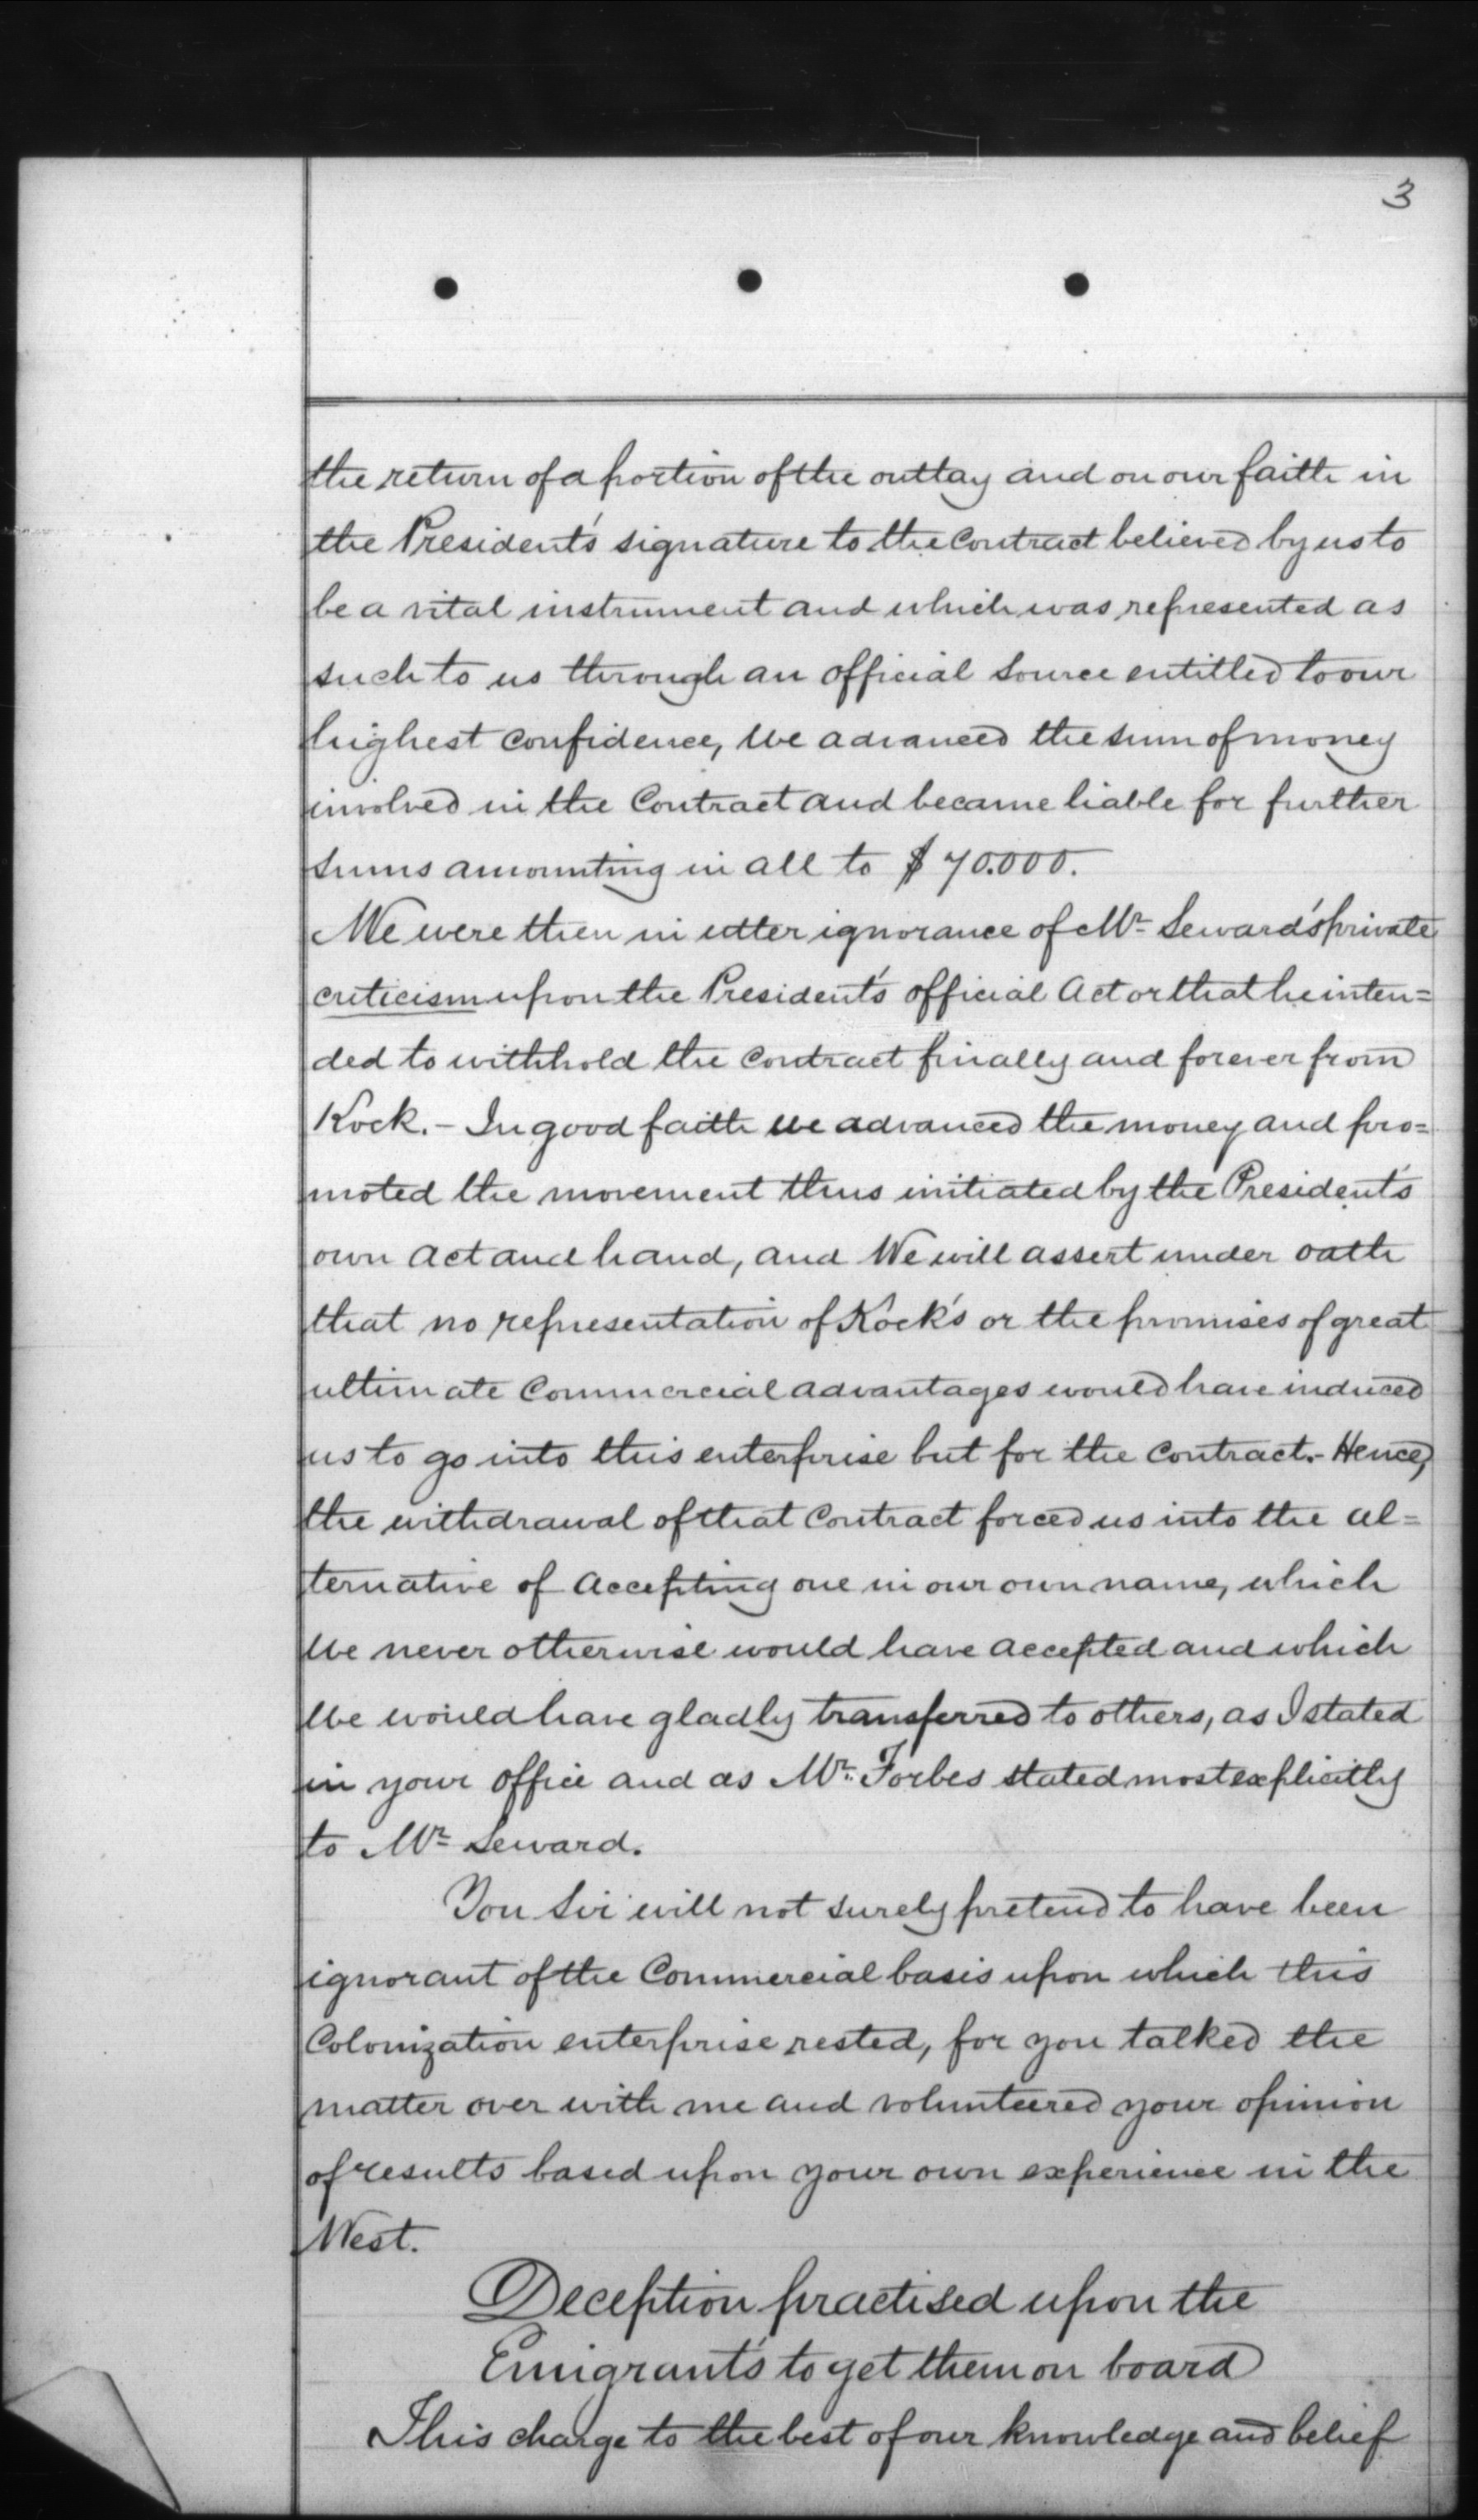 3
the return of a portion of the outlay and on our faith in
the President's signature to the Contract believed by us to
be a vital instrument and which was represented as
such to us through an official source entitled to our
highest confidence, we advanced the sum of money
involved in the Contract and became liable for further
sums amounting in all to $70.000.
We were then in utter ignorance of Mr Seward's private
criticism upon the President's official Act or that he inten=
ded to withhold the contract finally and forever from
Kock. - In good faith we advanced the money and pro=
moted the movement thus initiated by the President's
own act and hand, and We will assert under oath
that no representation of Kock's or the promises of great
ultimate Commercial advantages would have induced
us to go into this enterprise but for the contract. - Hence,
the withdrawal of that Contract forced us into the al=
ternative of accepting one in our own name, which
we never otherwise would have accepted and which
we would have gladly transferred to others, as I stated
in your office and as Mr. Forbes stated most explicitly
to Mr Seward.
You Sir will not surely pretend to have been
ignorant of the Commercial basis upon which this
Colonization enterprise rested, for you talked the
matter over with me and volunteered your opinion
of results based upon your own experience in the
West.
Deception practised upon the
Emigrant's to get them on board
This charge to the best of our knowledge and belief